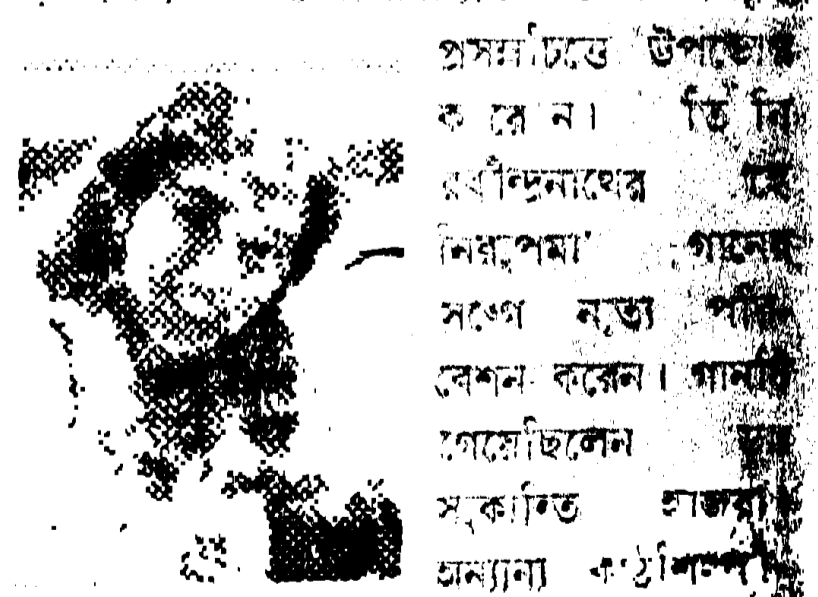 প্রসন্নচিত্তে উপভোগ
করেন। তিনি
রবীন্দ্রনাথের হে
নিরুপমা গানের
সঙ্গে নৃত্য পরি-
বেশন করেন। গানটি
গেয়েছিলেন
সুকান্তি হাজরা
অন্যান্য কণ্ঠশিল্পী